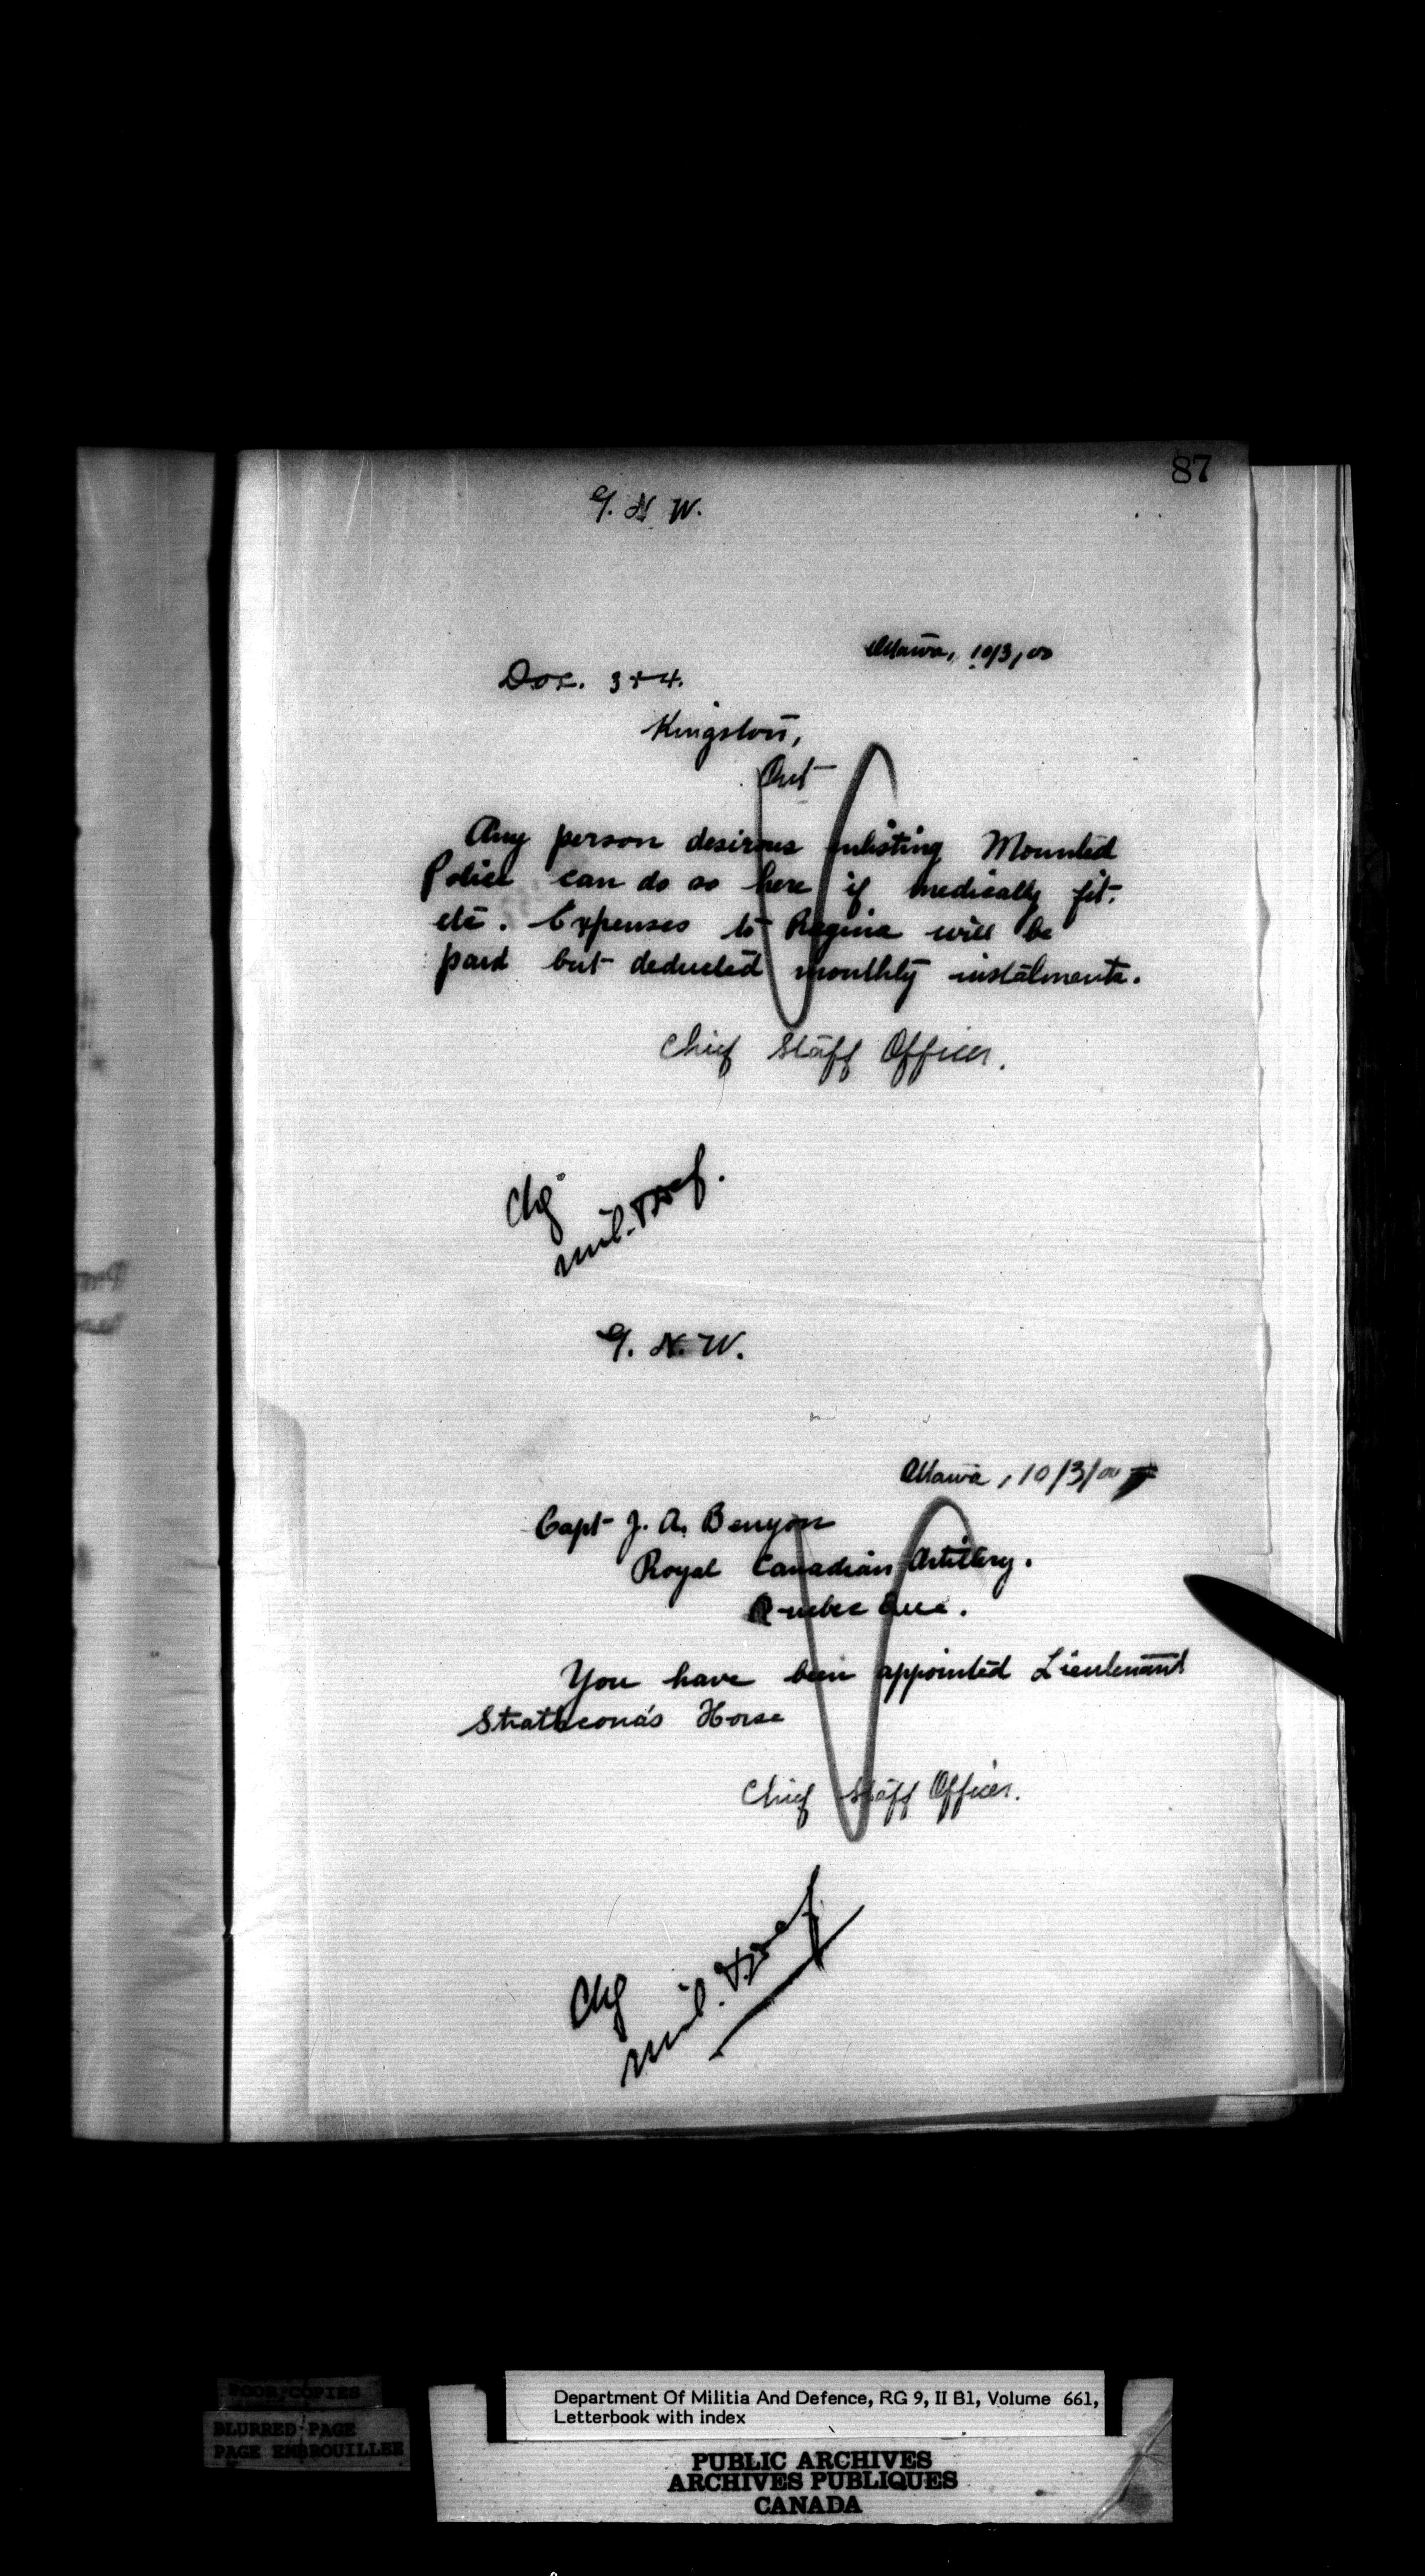 87
G. N W.
Ottawa, 10/3/00
D.o.c. 3 & 4.
Kingston,
Ont
Any person desirous enlisting Mounted
Police can do so here if medically fit.
etc. Expenses to Regina will be
paid but deducted monthly instalments.
Chief Staff Officer.
Chg
Mil. & Def.
G. N. W.
Ottawa, 10/3/00
Capt J. A. Benyon
Royal Canadian Artillery.
Quebec Que.
You have been appointed Lieutenant
Strathcona's Horse
Chief Staff Officer.
Chg
Mil. & Def
POOR COPIES
BLURRED PAGE
PAGE EMBROUILLEE
Department Of Militia And Defence, RG 9, II B1, Volume 661,
Letterbook with index
PUBLIC ARCHIVES
ARCHIVES PUBLIQUES
CANADA